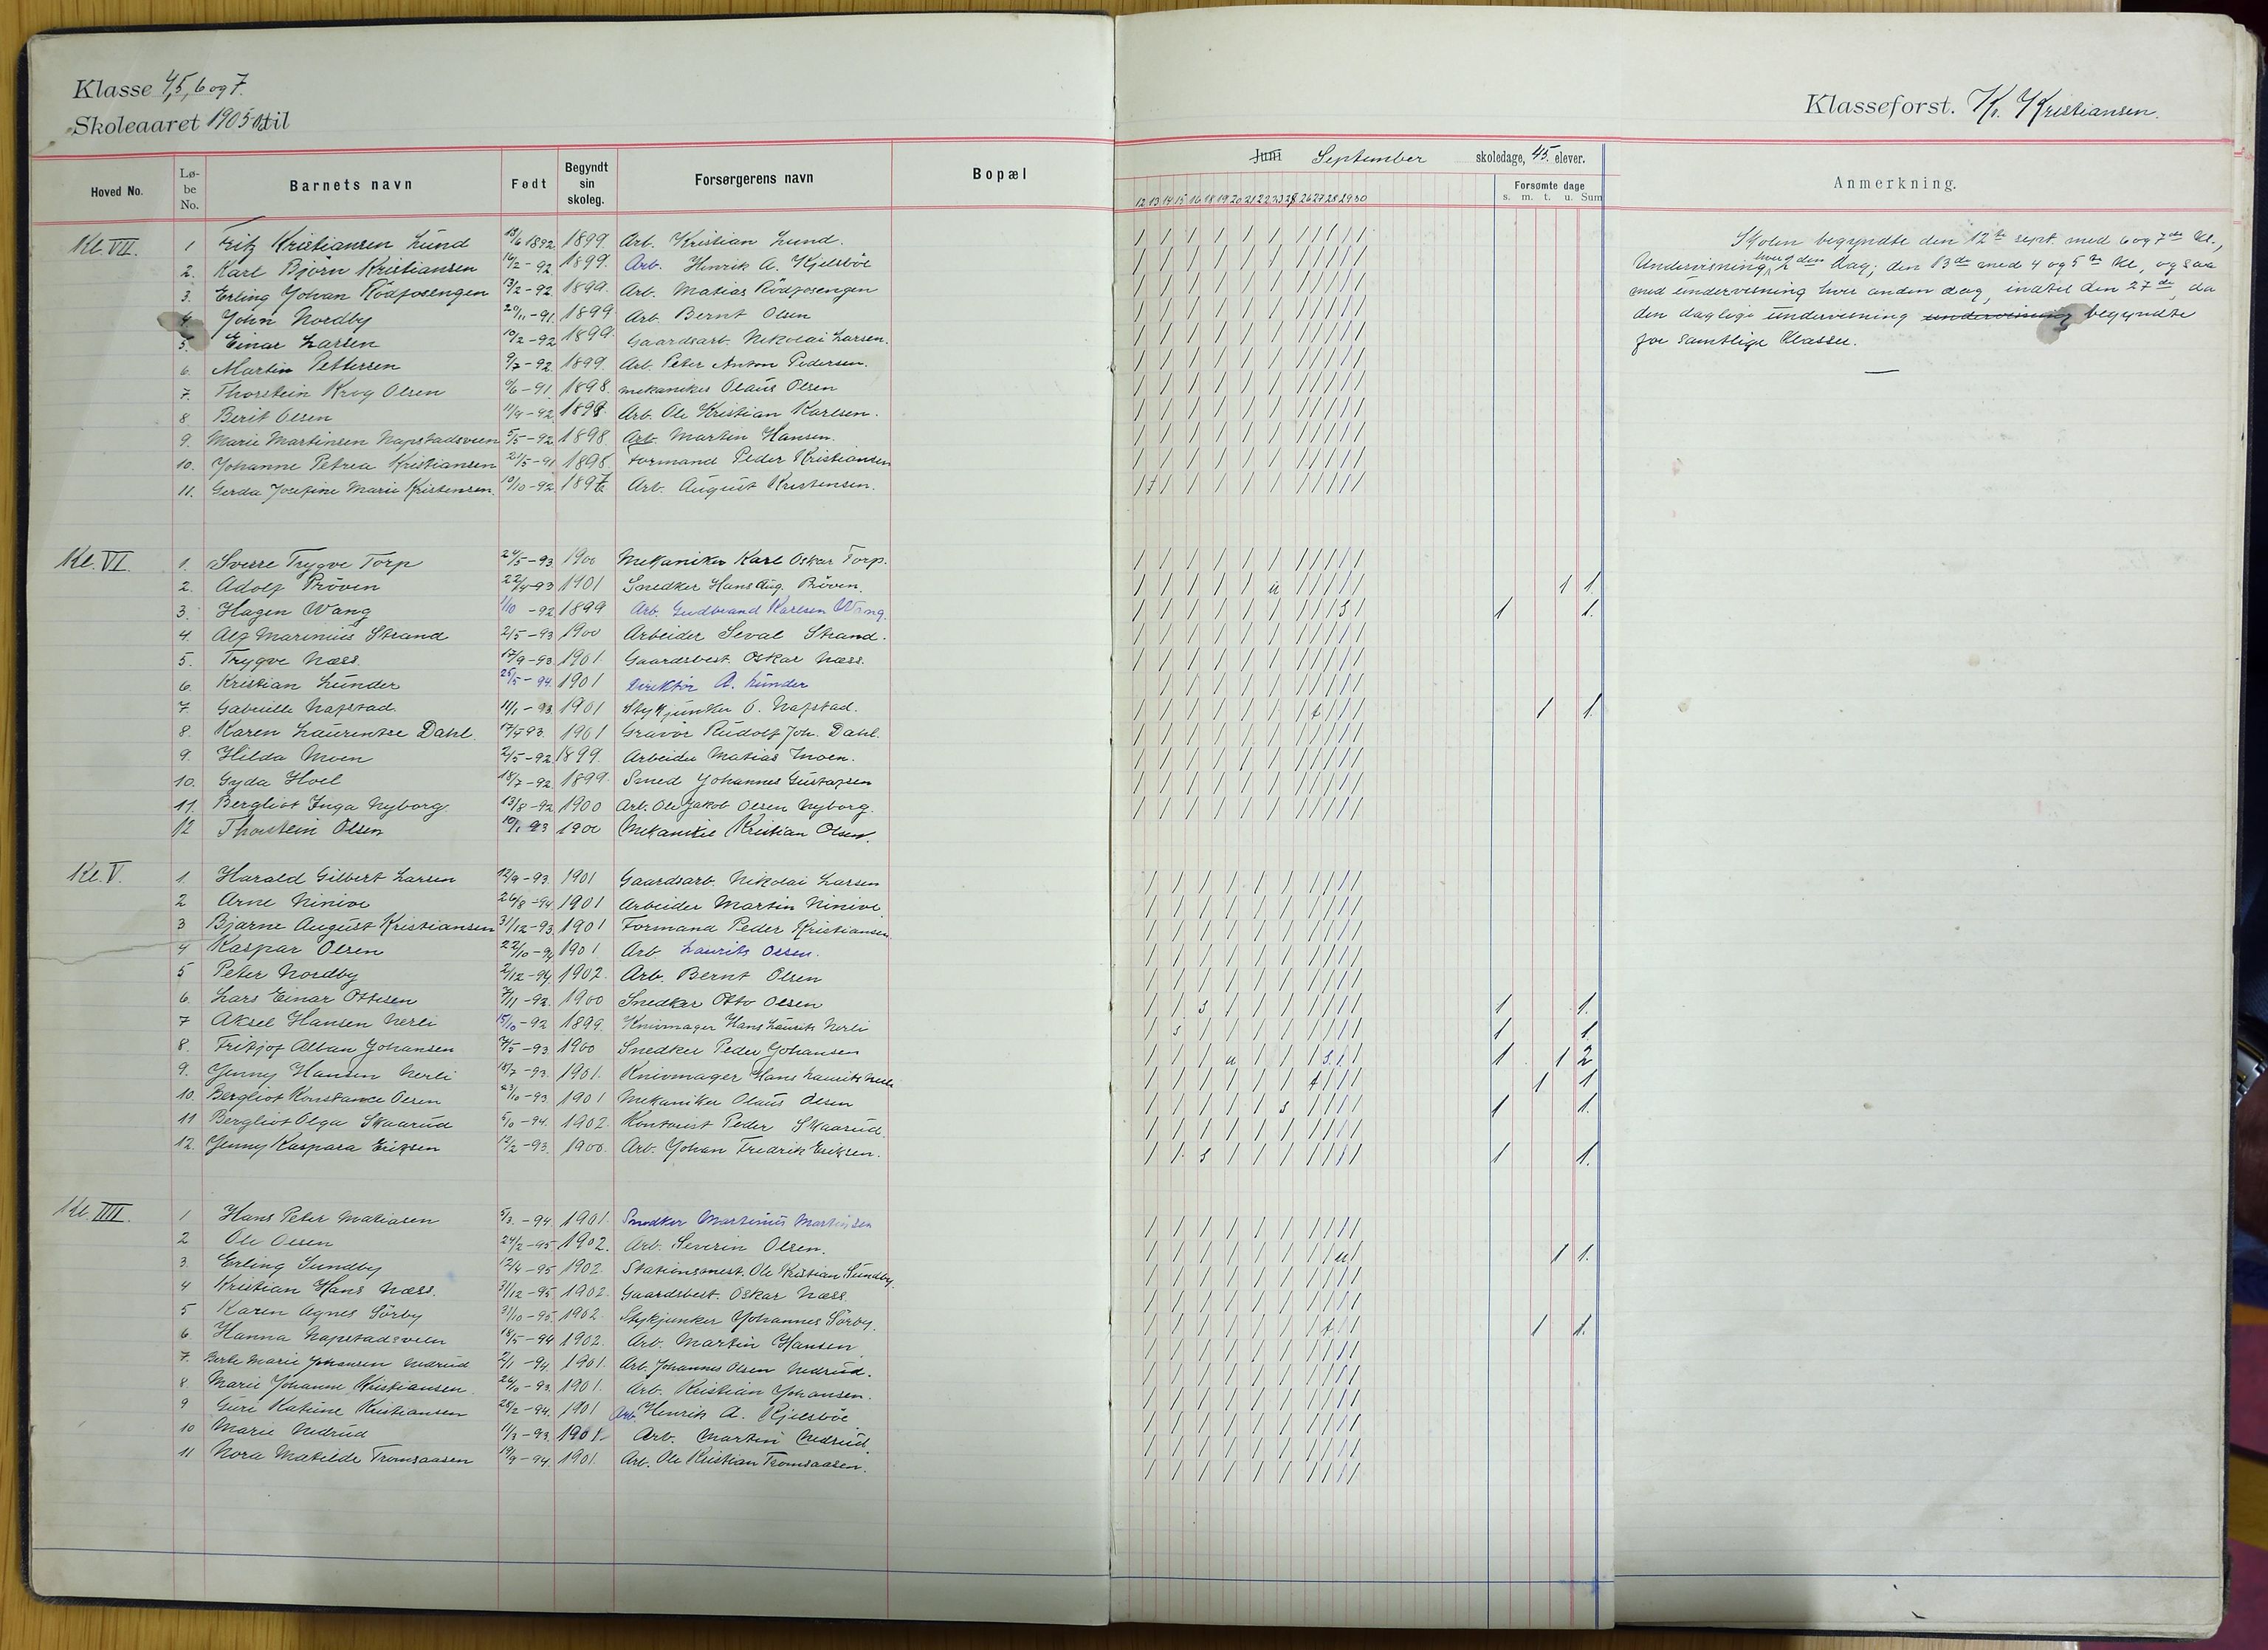 Klasse 4, 5, 6 og 7.
Skoleaaret 1905 til
Klasseforst. Kr. Kristiansen.
Hoved No. Løbe No. Barnets navn Født Begyndt sin skoleg. Forsørgerens navn Bopæl
Juni September skoledage, 45. elever.
Forsømte dage
s. m. t. u. Sum
Anmerkning.
12 13 14 15 16 18 19 20 21 22 23 25 26 27 28 29 30
Kl. VII. 1 Fritz Kristiansen Lund 13/6 1892. 1899. Arb. Kristian Lund.
2. Karl Björn Kristiansen 16/2 - 92 1899. Arb. Henrik A. Kjelsböe
3. Erling Johan Rödfosengen 13/2 - 92. 1899. Arb. Matias Rödfosengen
4. John Nordby 20/11 - 91. 1899 Arb. Bernt Olsen
5. Einar Larsen 10/2 - 92 1899. Gaardsarb. Nikolai Larsen.
6. Martin Pettersen 9/7 - 92 1899. Arb. Peter Anton Pedersen.
7. Thorstein Krog Olsen 9/6 - 91. 1898. Mekaniker Olaus Olsen
8 Berit Olsen 11/4 - 92. 1899. Arb. Ole Kristian Karlsen.
9. Marie Martinsen Napstadsveen 5/5 - 92. 1898. Arb. Martin Hansen.
10. Johanne Petrea Kristiansen 21/5 - 91 1898. Formand Peder Kristiansen
11. Gerda Josefine Marie Kristensen. 10/10 - 92. Arb. August Kristensen.
Kl. VI. 1. Sverre Trygve Torp 24/5 - 93. 1900 Mekaniker Karl Oskar Torp.
2. Adolf Pröven 22/4 - 93 1901 Snedker Hans Aug. Pröven. u 1 1.
3. Hagen Wang 1/10 - 92 1899 Arb. Gudbrand Karlsen Wang. s 1 1.
4. Alf Marinius Strand 2/5 - 93 1900 Arbeider Seval Strand.
5. Trygve Næss. 17/9 - 93. 1901. Gaardsbest. Oskar Næss.
6. Kristian Lunder 25/5 - 94. 1901 Direktör A. Lunder
7. Gabrielle Napstad. 11/1 - 93. 1901 Stykjunker O. Napstad. t 1 1.
8. Karen Laurentse Dahl. 1901 Gravör Rudolf Joh. Dahl.
9. Hilda Moen 2/5 - 92. 1899. Arbeider Matias Moen.
10. Gyda Hoel 18/7 - 92. 1899. Smed Johannes Gustafsen
11. Bergliot Inga Nyborg. 13/8 - 92 1900 Arb. Ole Jakob Olsen Nyborg.
12 Thorstein Olsen 10/1 93 1900 Mekaniker Kristian Olsen.
Kl. V. 1. Harald Gilbert Larsen 12/9 - 93. 1901 Gaardsarb. Nikolai Larsen
2 Arne Ninive 26/8 - 94. 1901 Arbeider Martin Ninive.
3 Bjarne August Kristiansen 31/12 - 93. 1901 Formand Peder Kristiansen.
4 Kaspar Olsen 22/10 - 94 1901. Arb. Laurits Olsen.
5 Peter Nordby 2/12 - 94. 1902. Arb. Bernt Olsen
6. Lars Einar Ottesen 1900 Snedker Otto Olsen s 1 1.
7 Aksel Hansen Nerli 15/10 - 92 1899. Knivmager Hans Laurits Nerli s 1 1.
8. Fritjof Alban Johansen 1900 Snedker Peder Johansen u s 1 1 2
9. Jenny Hansen Nerli 18/7 - 93. 1901. Knivmager Hans Laurits Nerli t 1 1
10. Bergliot Konstance Olsen 23/10 - 93 1901 Mekaniker Olaus Olsen s 1 1.
11 Bergliot Olga Skaarud 1902. Kontorist Peder Skaarud.
12. Jenny Kaspara Eriksen 12/2 - 93. 1900. Arb. Johan Fredrik Eriksen. s 1 1.
Kl. IIII. 1 Hans Peter Matiasen 5/3. - 94. 1901. Snedker Martinius Martinsen
2 Ole Olsen 24/2 - 95. 1902. Arb. Severin Olsen. u 1 1.
3. Erling Sundby 12/4 - 95 1902. Stationsmest. Ole Kristian Sundby.
4 Kristian Hans Næss. 31/12 - 95 1902. Gaardsbest. Oskar Næss.
5 Karen Agnes Sörby 31/10 - 95. 1902. Stykjunker Johannes Sörby. t 1 1.
6 Hanna Napstadsveen 18/5 - 94 1902. Arb. Martin Hansen
7. Berte Marie Johansen Nedrud 2/1 - 94. 1901. Arb. Johannes Olsen Nedrud.
8. Marie Johanne Kristiansen 26/10 - 93. 1901. Arb. Kristian Johansen.
9 Guri Katrine Kristiansen 28/2 - 94. 1901 Arb. Henrik A. Kjelsböe.
10 Marie Nedrud 11/3 - 93. 1901. Arb. Martin Nedrud.
11 Nora Matilde Tromsaasen 19/9 - 94. 1901. Arb. Ole Kristian Tromsaasen.
Skolen begyndte den 12te sept. med 6 og 7de Kl.,
Undervisning hver 2den Dag; den 13de med 4 og 5te Kl, og saa
med undervisning hver anden dag, indtil den 27de, da
den daglige undervisning undervisning begyndte
for samtlige Klasser.